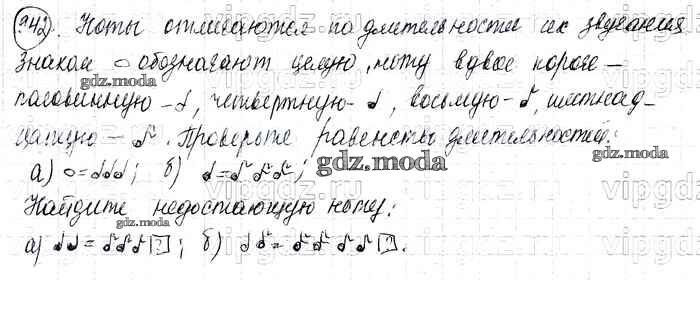 942. Ноты отличаются по длительности их звучания
Знаком о обозначают целую ноту, вдвое короче –
половинную – , четвертную – , восьмую – , шестнад-
цатую – . Проверьте равенства длительностей:
а) о = ; б) = ;
Найдите недостающую ноту:
а) = [?] ; б) = [?].
gdz.moda
gdz.moda
gdz.moda
gdz.moda
gdz.moda